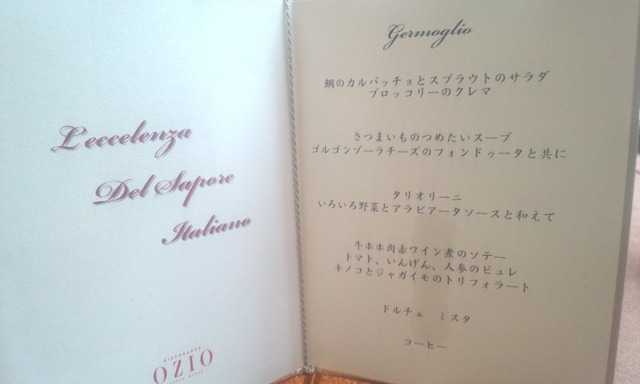 L'eccelenza
Del Sapore
Italiano
RISTORANTE
OZIO
Germoglio
鯛のカルパッチョとスプラウトのサラダ
ブロッコリーのクレマ
さつまいものつめたいスープ
ゴルゴンゾーラチーズのフォンドゥータと共に
タリオリーニ
いろいろ野菜とアラビアータソースと和えて
牛ホホ肉赤ワイン煮のソテー
トマト、いんげん、人参のピュレ
キノコとジャガイモのトリフォラート
ドルチェ ミスタ
コーヒー